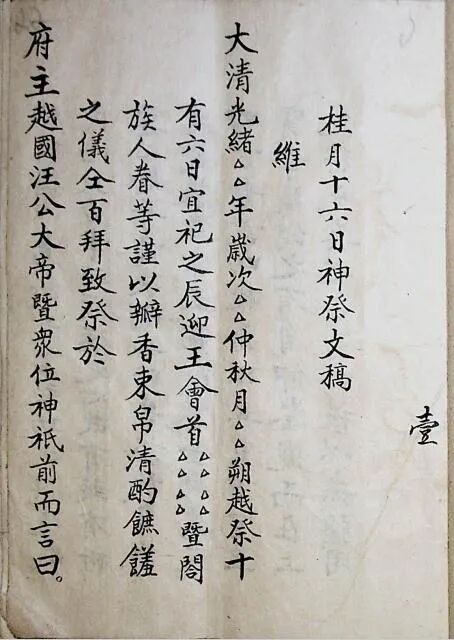 壹
桂月十六日神祭文稿
維
大清光緒△△年歲次△△仲秋月△△朔越祭十
有六日宜祀之辰迎王會首△△△△△△△△暨閤
族人眷等謹以瓣香東帛清酌饈
之儀仝百拜致祭於
府主越國汪公大帝暨衆位神祇前而言曰。